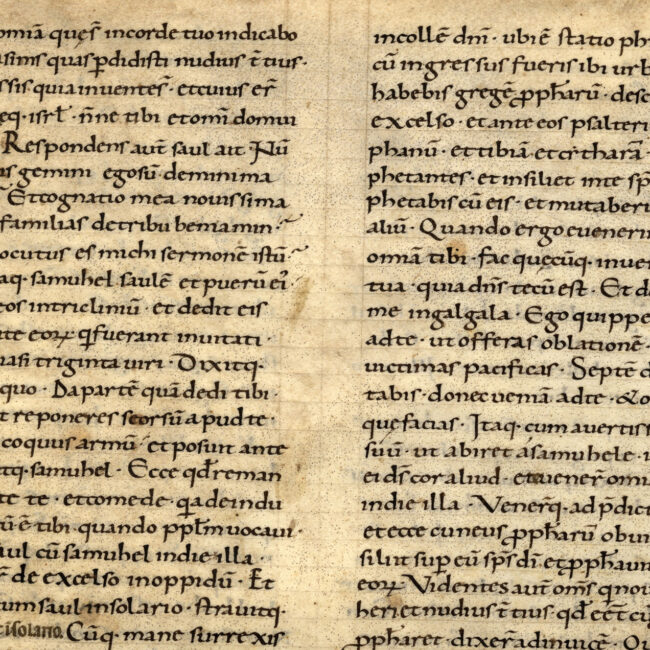 omīa que sᷤ incorde tuo indicabo
asinis quas ꝑdidisti nudius t̄tius ·
ssis quia inventȩ sᷤ · et cuius er̄
eq· isrł · n̄ne tibi et om̄i domui
Respondens aut̄ saul ait · Nū
us gemini egosū deminima
Et cognatio mea novissima
familias detribu beniamin ·
ocutus es michi sermonē istū ·
aq· samuhel saulē et puerū ei᾽
eos intricliniū · et dedit eis
te eoꝝ qͥ fuerant invitati ·
uasi triginta viri · Dixitq·
quo · Da partē quā dedi tibi ·
t reponeres seorsū apud te ·
coquus armū · et posuit ante
itq· samuhel · Ecce qđ reman
te te · et comede · qͥa deindu
ū ē tibi · quando ppłm vocavi ·
aul cū samuhel indie illa ·
de excelso inoppidū · Et
cum saul insolario · stravitq·
insolario. Cūq· mane surrexis
incollē dn̄i · ubi ē statio ph
cū ingressus fueris ibi urb
habebis gregē ꝓphaꝝ desc
excelso · et ante eos psalteri
phanū · et tibiā · et cytharā ·
phetantes · et insiliet inte sp̄
phetabis cū eis · et mutaberi
aliū · Quando ergo evenerin
omīa tibi · fac quecūq· inven
tua · quia dn̄s tecū est · Et d
me ingalgala · Ego quippe
adte · ut offeras oblationē ·
victimas pacificas · Septē d
tabis · donec veniā adte · & o
que facias · Itaq· cum avertiss
suū · ut abiret asamuhele · i
ei ds̄ cor aliud · et vener̄ om̄
indie illa · Venerq· ad p̄dict
et ecce cuneus ꝓphaꝝ obvi
siluit sup eū sp̄s dī · et ꝓphavit
eoꝝ · Videntes aut̄ om̄s qͥ nov
heri et nudius t̄tius · qđ eēt cū
ꝓpharet · dixer̄ adinvicē · Qu